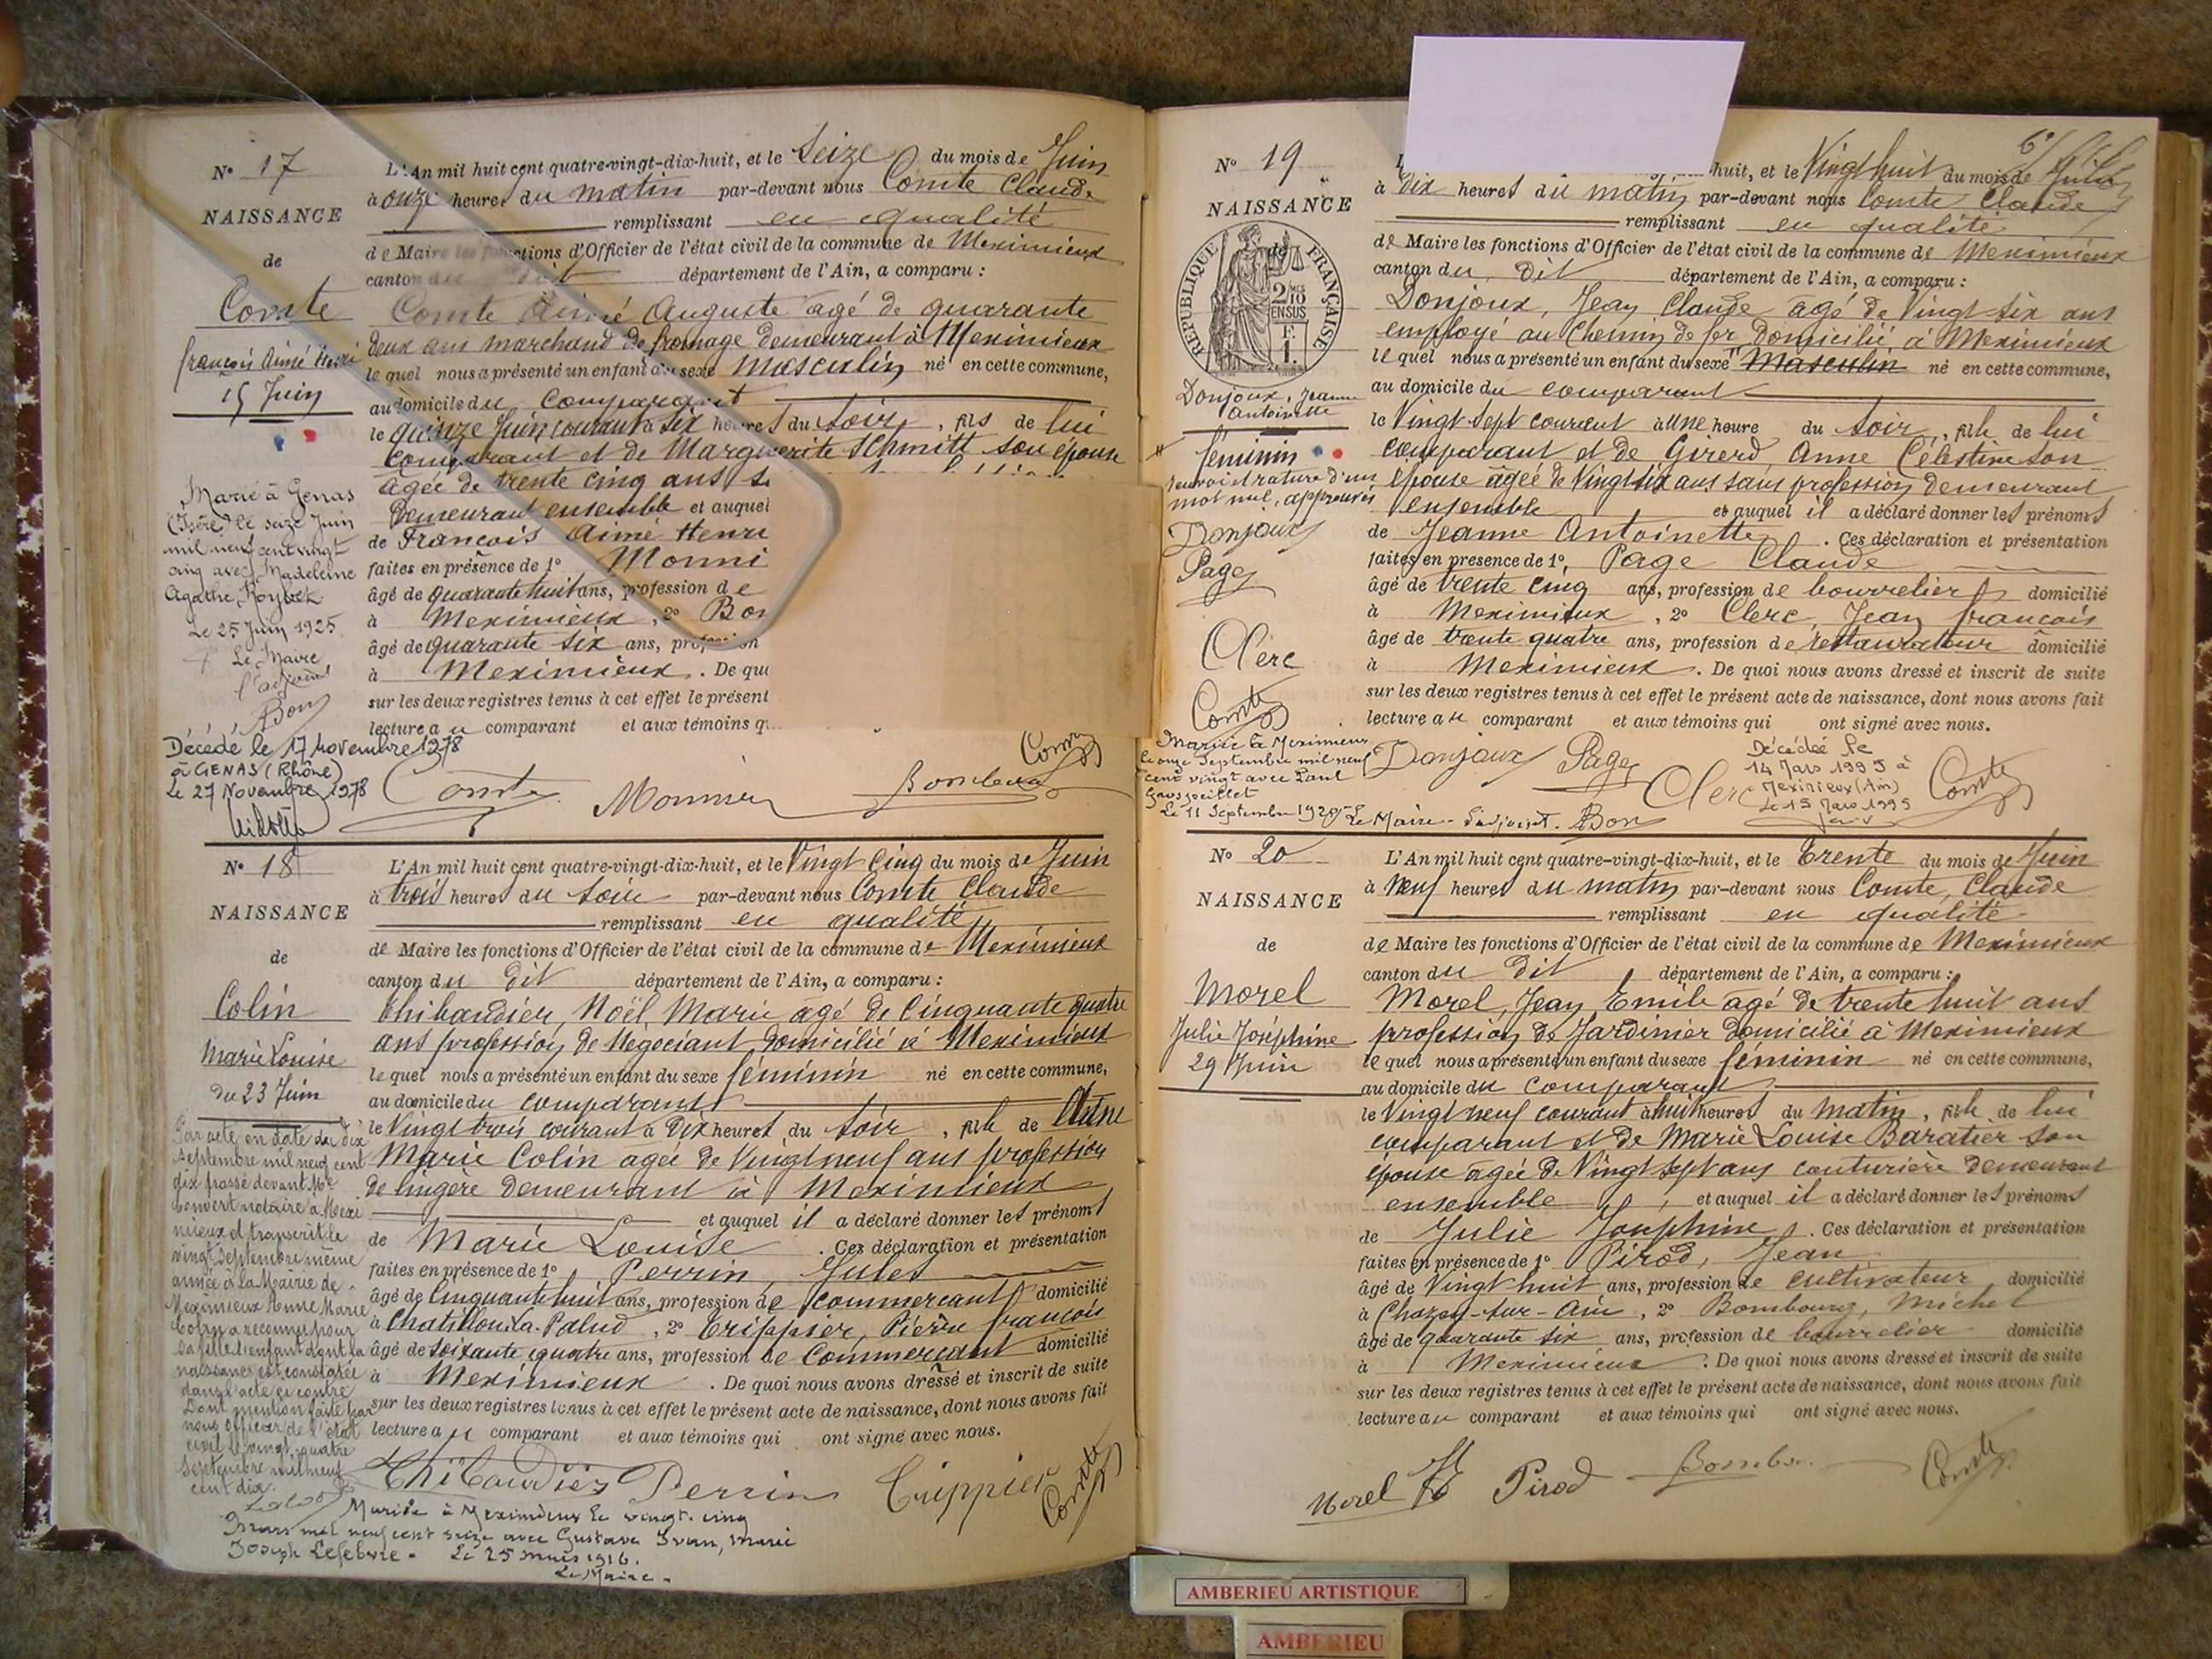 N° 17
NAISSANCE
de
Comte
françois Aimé Henri
15 Juin
Marié à Genas
(Isère) le seize Juin
mil neuf cent vingt
cinq avec Madeleine
Agathe
Le 25 Juin 1925
Le Maire,
l'adjoint
Bon
Décédé le 17 Novembre 1978
à GENAS (Rhône)
Le 27 Novembre 1978
L'An mil huit cent quatre-vingt-dix-huit, et le Seize du mois de Juin
à onze heures du matin par-devant nous Comte Claude
remplissant en qualité
de Maire les fonctions d'Officier de l'état civil de la commune de Meximieux
canton du dit département de l'Ain, a comparu :
Comte Aimé Auguste agé de quarante
deux ans marchand de fromage demeurant à Meximieux
le quel nous a présenté un enfant du sexe masculin né en cette commune,
au domicile du comparant
le quinze Juin courant à six heures du soir, fils de lui
comparant et de Marguerite Schmitt son épouse
agée de trente cinq ans s
demeurant ensemble et auquel
de François Aimé Henri
faites en présence de 1° Monni
âgé de quarante huit ans, profession de
à Meximieux, 2° Bor
âgé de quarante six ans, profession
à Meximieux. De quo
sur les deux registres tenus à cet effet le présent
lecture au comparant et aux témoins q
Comte Monnier Bombourg Comte
N° 18
NAISSANCE
de
Colin
Marie Louise
du 23 Juin
Par acte en date du dix
septembre mil neuf cent
dix passé devant Me
Convert notaire à Mexi
mieux et transcrit le
vingt septembre même
année à la Mairie de
Meximieux Anne Marie
Colin a reconnu pour
sa fille l'enfant dont la
naissance est constatée
dans l'acte ci contre
Dont mention faite par
nous officier de l'état
civil le vingt quatre
septembre mil neuf
cent dix
L'An mil huit cent quatre-vingt-dix-huit, et le Vingt Cinq du mois de Juin
à trois heures du soir par-devant nous Comte Claude
remplissant en qualité
de Maire les fonctions d'Officier de l'état civil de la commune de Meximieux
canton du dit département de l'Ain, a comparu :
Thibaudier, Noël, Marie agé de Cinquante quatre
ans profession de Négociant domicilié à Meximieux
le quel nous a présenté un enfant du sexe féminin né en cette commune,
au domicile du comparant
le Vingt trois courant à Dix heures du soir, fille de Anne
Marie Colin agée de Vingt neuf ans profession
de lingère demeurant à Meximieux
et auquel il a déclaré donner les prénoms
de Marie Louise. Ces déclaration et présentation
faites en présence de 1° Perrin, Jules
âgé de Cinquante huit ans, profession de commerçant domicilié
à Chatillon la Palud, 2° Trippier, Pierre françois
âgé de soixante quatre ans, profession de Commerçant domicilié
à Meximieux. De quoi nous avons dressé et inscrit de suite
sur les deux registres tenus à cet effet le présent acte de naissance, dont nous avons fait
lecture au comparant et aux témoins qui ont signé avec nous.
Thibaudier Perrin Trippier Comte
Mariée à Meximieux le vingt-cinq
mars mil neuf cent seize avec Gustave Ivan, Marie
Joseph Lefebvre - Le 25 mars 1916.
Le Maire -
6e
N° 19
NAISSANCE
de
RÉPUBLIQUE FRANÇAISE
2/10
EN SUS
F.
1.
Donjoux, Jeanne
Antoinette
féminin
renvoi et rature d'un
mot nul, approuvés
Donjoux
Page
Clerc
Comte
Mariée à Meximieux
le onze Septembre mil neuf
cent vingt avec Paul
Le 11 Septembre 1920 Le Maire - L'adjoint. Bon
huit, et le Vingt huit du mois de Juin
à Dix heures du matin par-devant nous Comte Claude
remplissant en qualité
de Maire les fonctions d'Officier de l'état civil de la commune de Meximieux
canton du dit département de l'Ain, a comparu :
Donjoux, Jean Claude agé de Vingt six ans
employé au Chemin de fer, domicilié à Meximieux
le quel nous a présenté un enfant du sexe masculin né en cette commune,
au domicile du comparant
le Vingt-sept courant à une heure du soir, fille de lui
comparant et de Girerd Anne Célestine son
épouse âgée de Vingt six ans sans profession demeurant
ensemble et auquel il a déclaré donner les prénoms
de Jeanne Antoinette. Ces déclaration et présentation
faites en présence de 1°, Page Claude
âgé de trente cinq ans, profession de bourrelier domicilié
à Meximieux, 2° Clerc, Jean françois
âgé de trente quatre ans, profession de restaurateur domicilié
à Meximieux. De quoi nous avons dressé et inscrit de suite
sur les deux registres tenus à cet effet le présent acte de naissance, dont nous avons fait
lecture au comparant et aux témoins qui ont signé avec nous.
Donjoux Page Clerc Comte
Décédée le
14 Mars 1995 à
Meximieux (Ain)
Le 15 Mars 1995
N° 20
NAISSANCE
de
Morel
Julie Joséphine
29 Juin
L'An mil huit cent quatre-vingt-dix-huit, et le Trente du mois de Juin
à Neuf heures du matin par-devant nous Comte, Claude
remplissant en qualité
de Maire les fonctions d'Officier de l'état civil de la commune de Meximieux
canton du dit département de l'Ain, a comparu :
Morel, Jean Emile agé de trente huit ans
profession de Jardinier domicilié à Meximieux
le quel nous a présenté un enfant du sexe féminin né en cette commune,
au domicile du comparant
le Vingt neuf courant à huit heures du matin, fille de lui
comparant et de Marie Louise Baratier son
épouse agée de Vingt sept ans couturière demeurant
ensemble, et auquel il a déclaré donner les prénoms
de Julie Josephine. Ces déclaration et présentation
faites en présence de 1° Pirod, Jean
âgé de Vingt huit ans, profession de cultivateur domicilié
à Chazey-sur-Ain, 2° Bombourg, Michel
âgé de quarante six ans, profession de bourrelier domicilié
à Meximieux. De quoi nous avons dressé et inscrit de suite
sur les deux registres tenus à cet effet le présent acte de naissance, dont nous avons fait
lecture au comparant et aux témoins qui ont signé avec nous.
Morel Pirod Bombourg Comte
AMBERIEU ARTISTIQUE
AMBERIEU